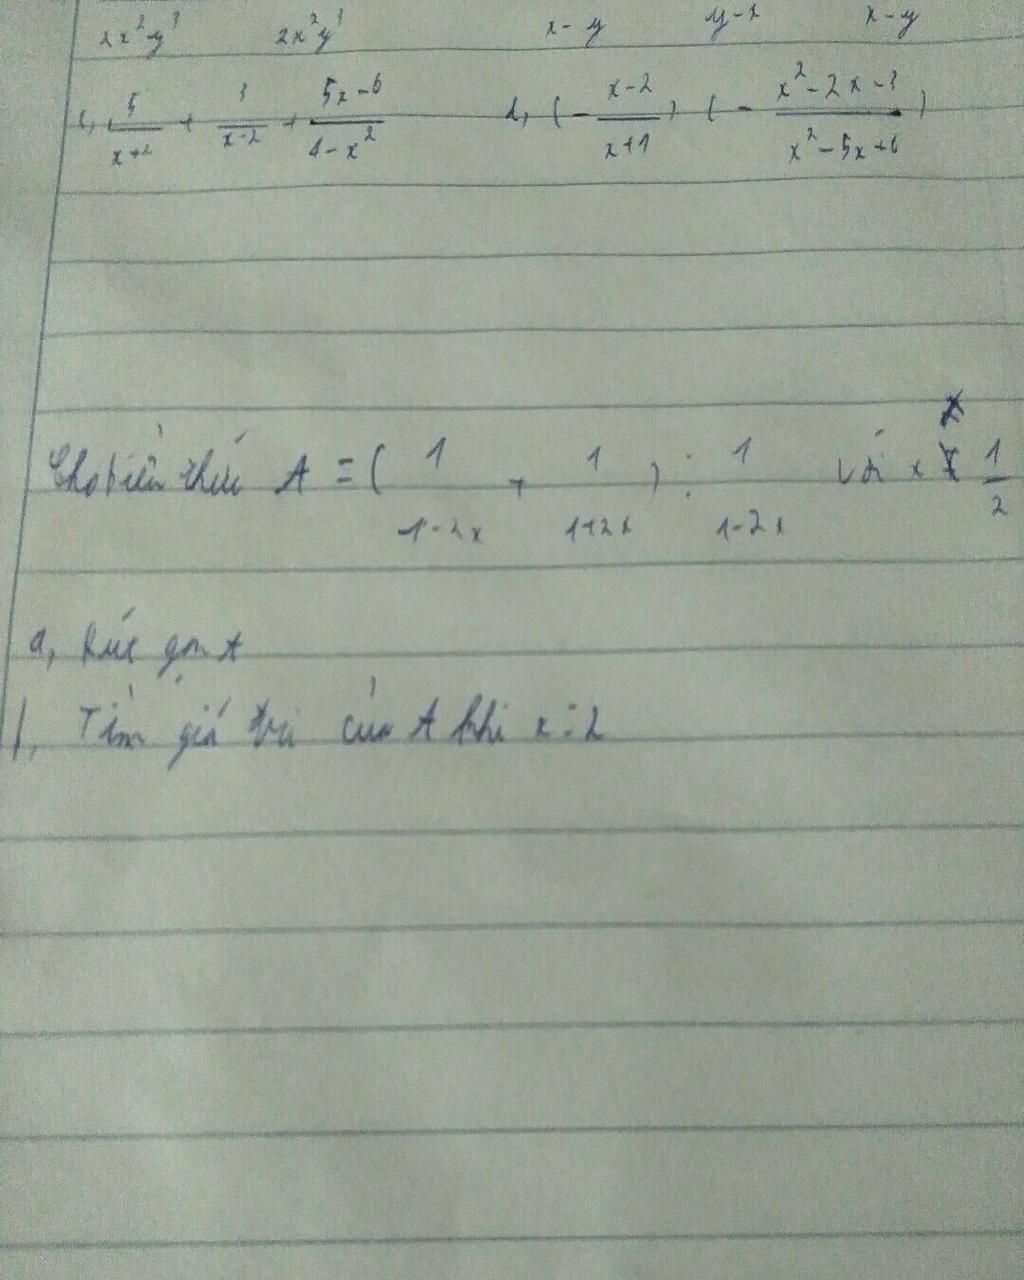 2x²y³ 2x²y³ x-y y-x x-y
c, 5/(x+2) + 3/(x-2) + (5x-6)/(4-x²) d, (-(x-2)/(x+1)) (-(x²-2x-3)/(x²-5x+6))
Cho biểu thức A = (1/(1-2x) + 1/(1+2x)) : 1/(1-2x) với x ≠ 1/2
a, Rút gọn A
b, Tìm giá trị của A khi x = 2